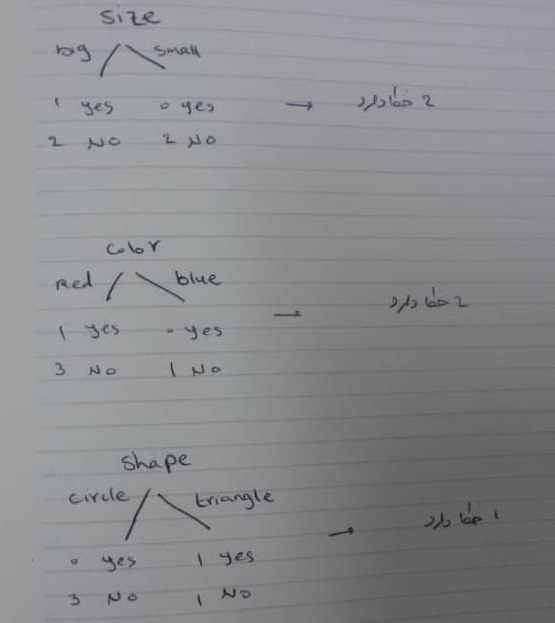 size
big small
1 yes 0 yes → 2 خطا دارد
2 NO 2 NO
color
red blue
1 yes 0 yes → 2 خطا دارد
3 NO 1 NO
shape
circle triangle
0 yes 1 yes → 1 خطا دارد
3 NO 1 NO